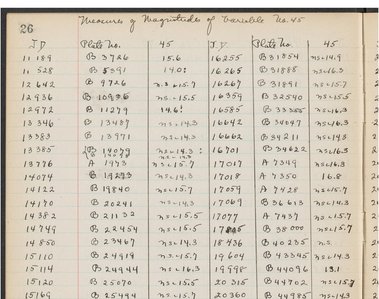 26
Measures of Magnitudes of Variable No. 45
J D Plate No. 45 J D Plate No. 45
11 189 B 3726 15.6 16255 B 31854 ns<14.9
11 528 B 5391 14.0: 16265 B 31885 ns<16.3
12 642 B 9726 n.s<15.7 16267 B 31891 ns<15.7
12 936 ns<15.5 16359 B 32540 ns<15.5
12972 B 11279 14.6: 16585 B 33385 ns<16.3
13 346 B 13487 ns<14.3 16642 B 34097 ns<16.3
13 383 B 13971 ns<14.3 16662 B 34211 ns<14.3
13 385 B 14079 ns<14.3 16701 B 34622 ns<16.3
13776 A 1973 ns<15.7 17017 A 7349 ns<16.3
14074 ns<14.3 17018 A 7350 16.8
14122 B 19840 ns<15.7 17059 A 7428 ns<15.7
14170 B 20241 ns<14.3 17069 B 36613 ns<14.3
14 382 B 21132 ns<15.5 17077 A 7437 ns<15.7
14 749 B 22454 ns<15.5 B 38000 ns<15.7
14 850 B 23467 ns<14.3 18 436 B 40235 n.s.
15110 B 24919 ns<15.7 19 604 B 43345 ns<14.3
15114 B 24944 ns<16.3 19998 B 44096 13.1
15120 B 25070 ns<15.5 20 315 B 44702 ns<15.7
15169 B 25494 ns<15.7 20360 B 44985 ns<14.3